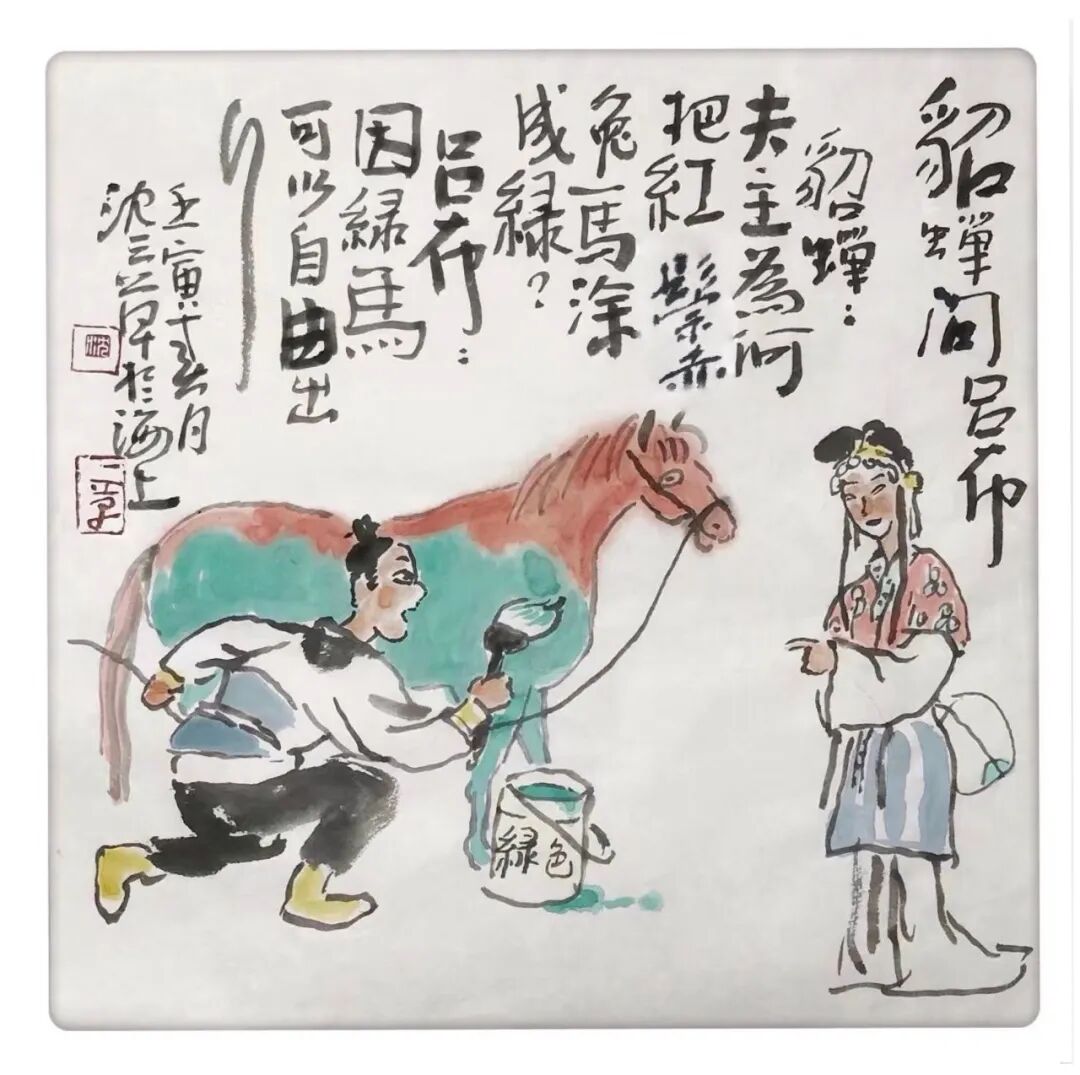 貂蟬問呂布
貂蟬：
夫主為何
把紅鬃赤
兔馬涂
成緑？
呂布：
因緑馬
可以自由出
行
壬寅月
沈三草於海上
沈
三草
緑色